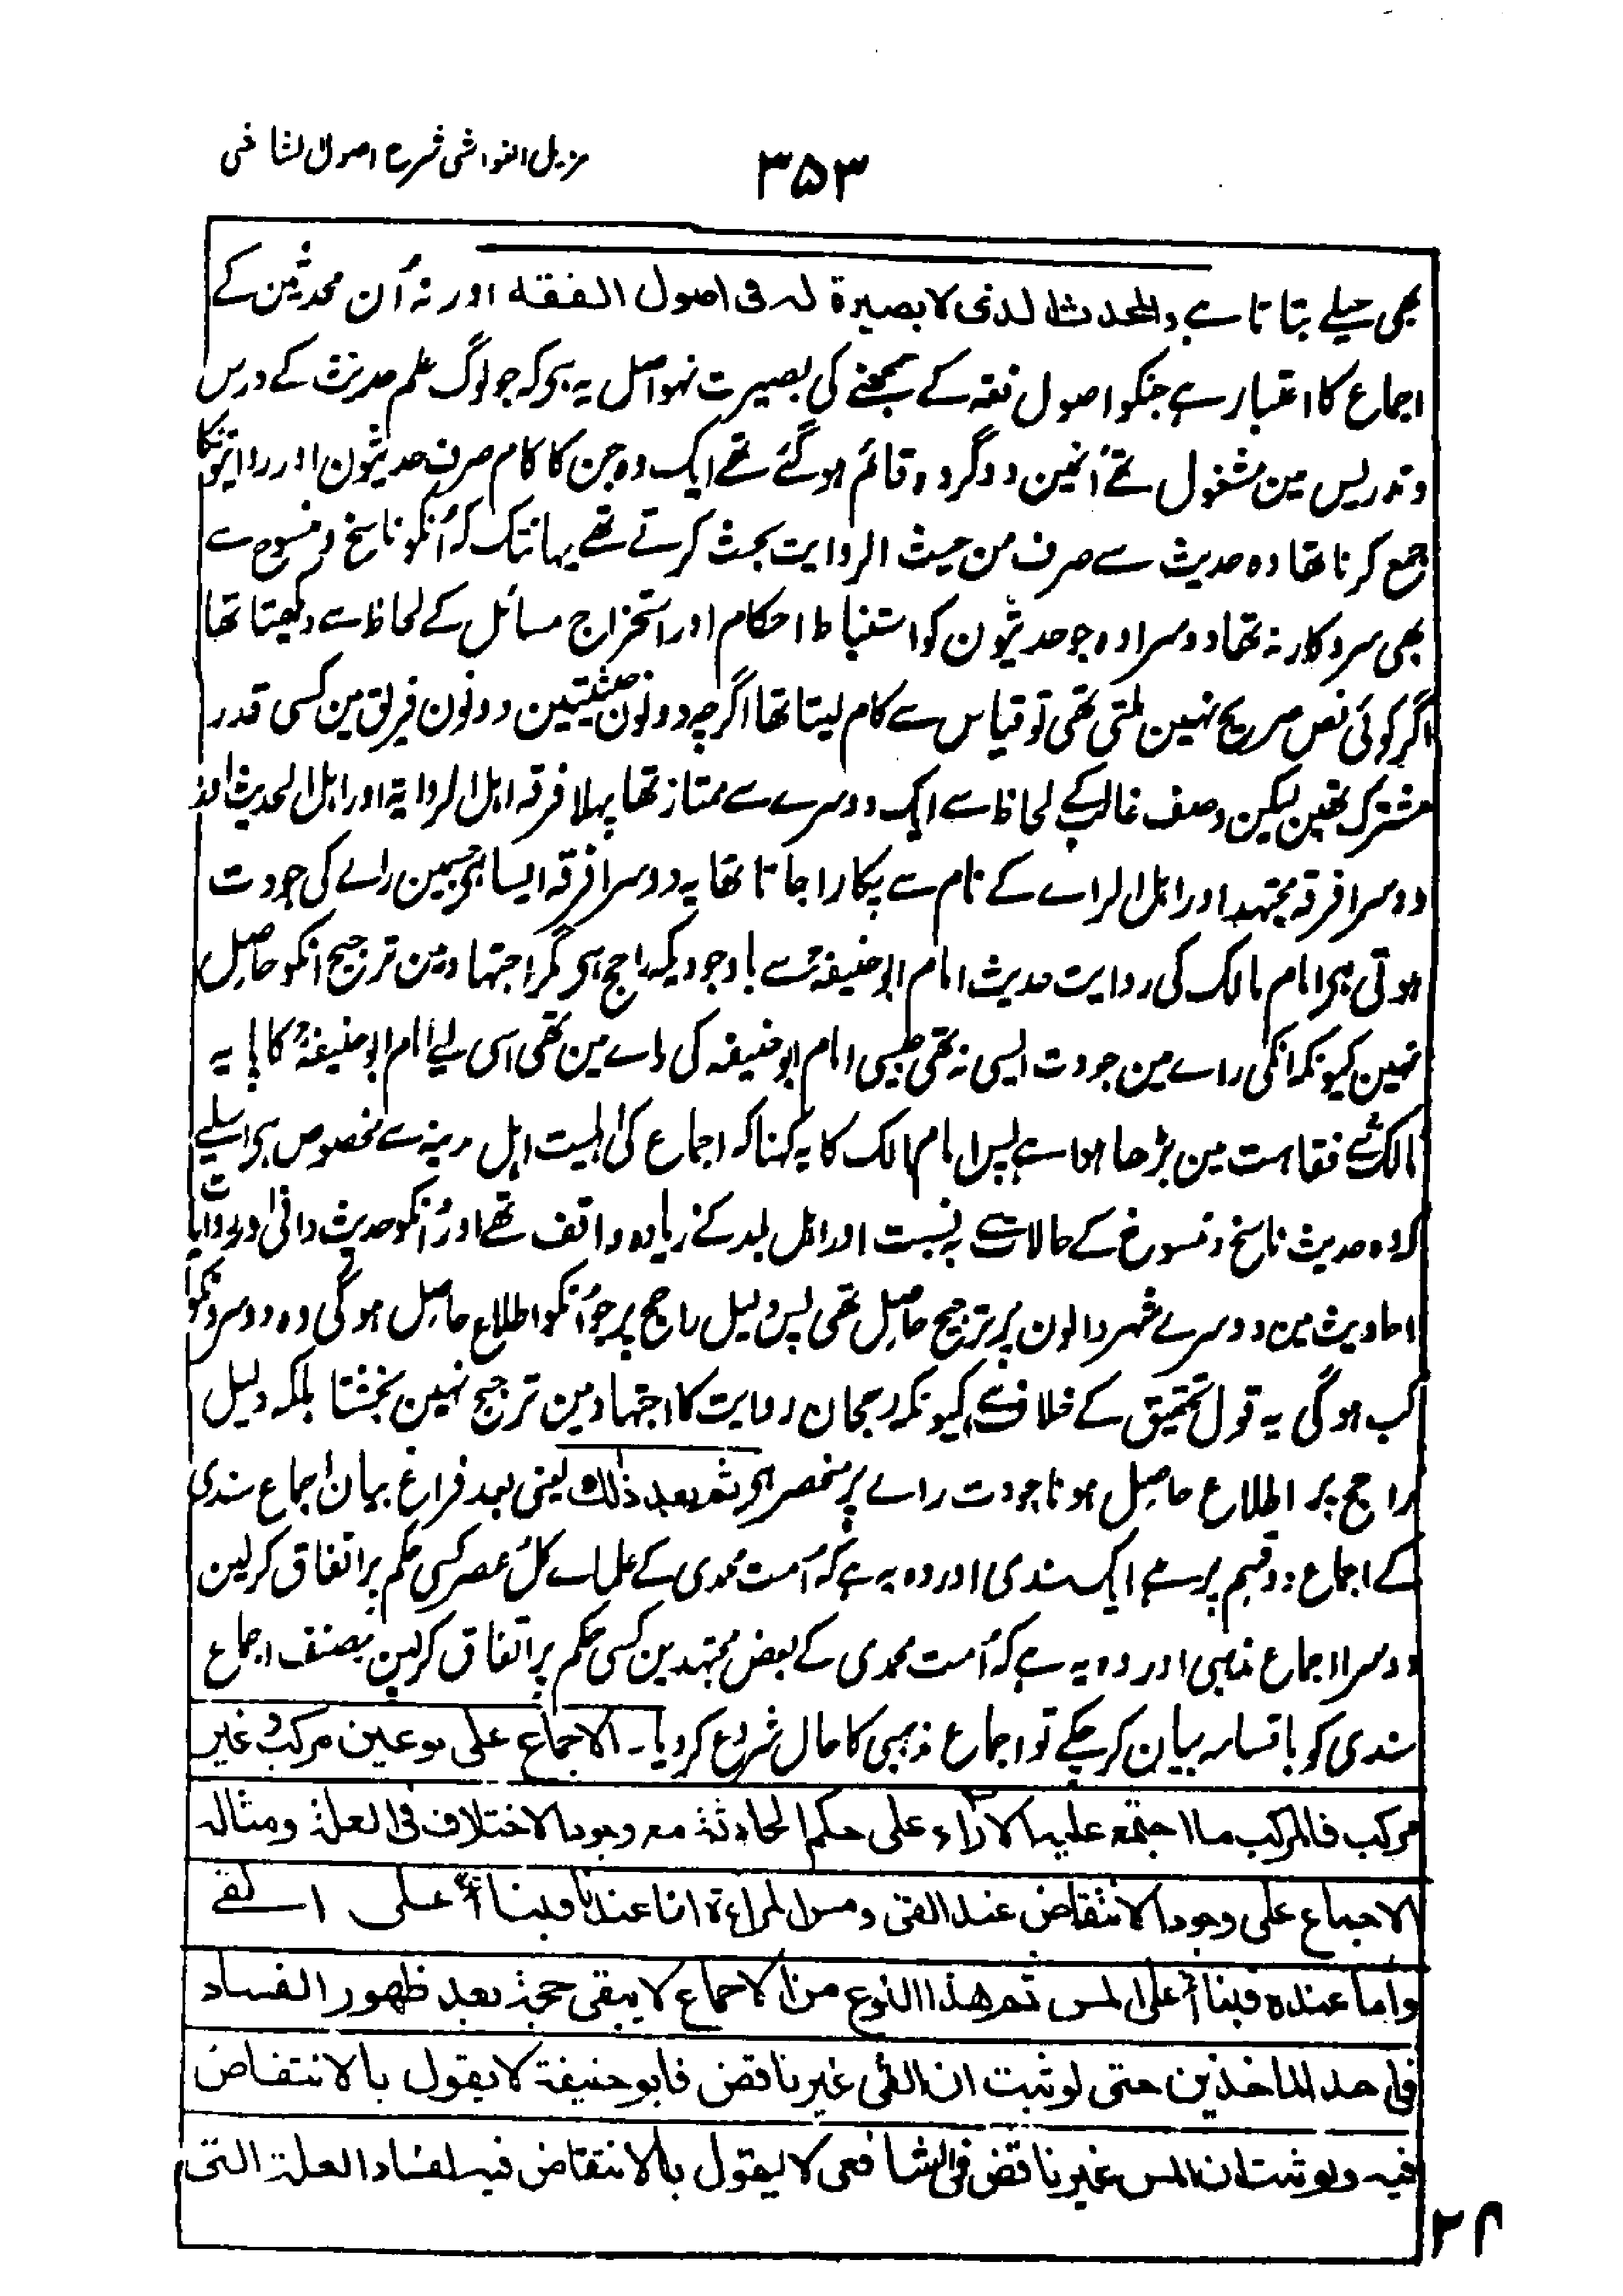 ۳۵۳
مزیل الغواشی شرح اصول الشاشی
بھی حیلے بتاتا ہے والمحدث الذی لا بصیرة له فی اصول الفقه اور نہ اُن محدثین کے
اجماع کا اعتبار ہے جنکو اصول فقہ کے سمجھنے کی بصیرت نہو اصل یہ ہی کہ جو لوگ علم حدیث کے درس
و تدریس مین مشغول تھے اُنہین دو گروہ قائم ہو گئے تھے ایک وہ جن کا کام صرف حدیثون اور روایتونکا
جمع کرنا تھا وہ حدیث سے صرف من حیث الروایت بحث کرتے تھے یہانتک کہ اُنکو ناسخ و منسوخ سے
بھی سروکار نہ تھا دوسرا وہ جو حدیثون کو استنباط احکام اور استخراج مسائل کے لحاظ سے دیکھتا تھا
اگر کوئی نص صریح نہین ملتی تھی تو قیاس سے کام لیتا تھا اگرچہ دونون حیثیتین دونون فریق مین کسی قدر
مشترک تھین لیکن وصف غالب کے لحاظ سے ایک دوسرے سے ممتاز تھا پہلا فرقہ اہل الروایۃ اور اہل الحدیث اور
دوسرا فرقہ مجتہد اور اہل الراے کے نام سے پکارا جاتا تھا یہ دوسرا فرقہ ایسا ہی جسمین راے کی جودت
ہوتی ہی امام مالک کی روایت حدیث امام ابو حنیفہؒ سے باوجودیکہ راجح ہی مگر اجتہاد مین ترجیح انکو حاصل
نہین کیونکہ انکی راے مین جودت ایسی نہ تھی جیسی امام ابو حنیفہ کی راے مین تھی اسی لیے امام ابو حنیفہؒ کا پایہ
مالکؒ سے فقاہت مین بڑھا ہوا ہے پس امام مالک کا یہ کہنا کہ اجماع کی اہلیت اہل مدینہ سے مخصوص ہی اسلیے
کہ وہ حدیث ناسخ و منسوخ کے حالات سے بہ نسبت اور اہل بلد کے زیادہ واقف تھے اور اُنکو حدیث دانی اور روایات
احادیث مین دوسرے شہر والون پر ترجیح حاصل تھی پس دلیل راجح پر جو اُنکو اطلاع حاصل ہوگی وہ دوسرونکو
کب ہوگی یہ قول تحقیق کے خلاف ہے کیونکہ رجحان روایت کا اجتہاد مین ترجیح نہین بخشتا بلکہ دلیل
راجح پر اطلاع حاصل ہونا جودت راے پر منحصر ہی ثم بعد ذلك یعنی بعد فراغ بیان اجماع سندی
کے اجماع دو قسم پر ہے ایک سندی اور وہ یہ ہے کہ اُمت محمدی کے علماے کل عصر کسی حکم پر اتفاق کرلین
دوسرا اجماع مذہبی اور وہ یہ ہے کہ اُمت محمدی کے بعض مجتہدین کسی حکم پر اتفاق کرلین مصنف اجماع
سندی کو باقسامہ بیان کر چکے تو اجماع مذہبی کا حال شروع کر دیا۔ الاجماع علی نوعین مرکب و غیر
مرکب فالمرکب ما اجتمع علیه الآراء علی حکم الحادثة مع وجود الاختلاف فی العلة ومثاله
الاجماع علی وجود الانتقاض عند القئ ومس المراءة اما عندنا فبناءً علی القئ
واما عنده فبناءً علی المس ثم هذا النوع من الاجماع لا یبقی حجة بعد ظهور الفساد
فی احد الماخذین حتی لو ثبت ان القئ غیر ناقض فابو حنیفة لا یقول بالانتقاض
فیه ولو ثبت ان المس غیر ناقض فالشافعی لا یقول بالانتقاض فیه لفساد العلة التی